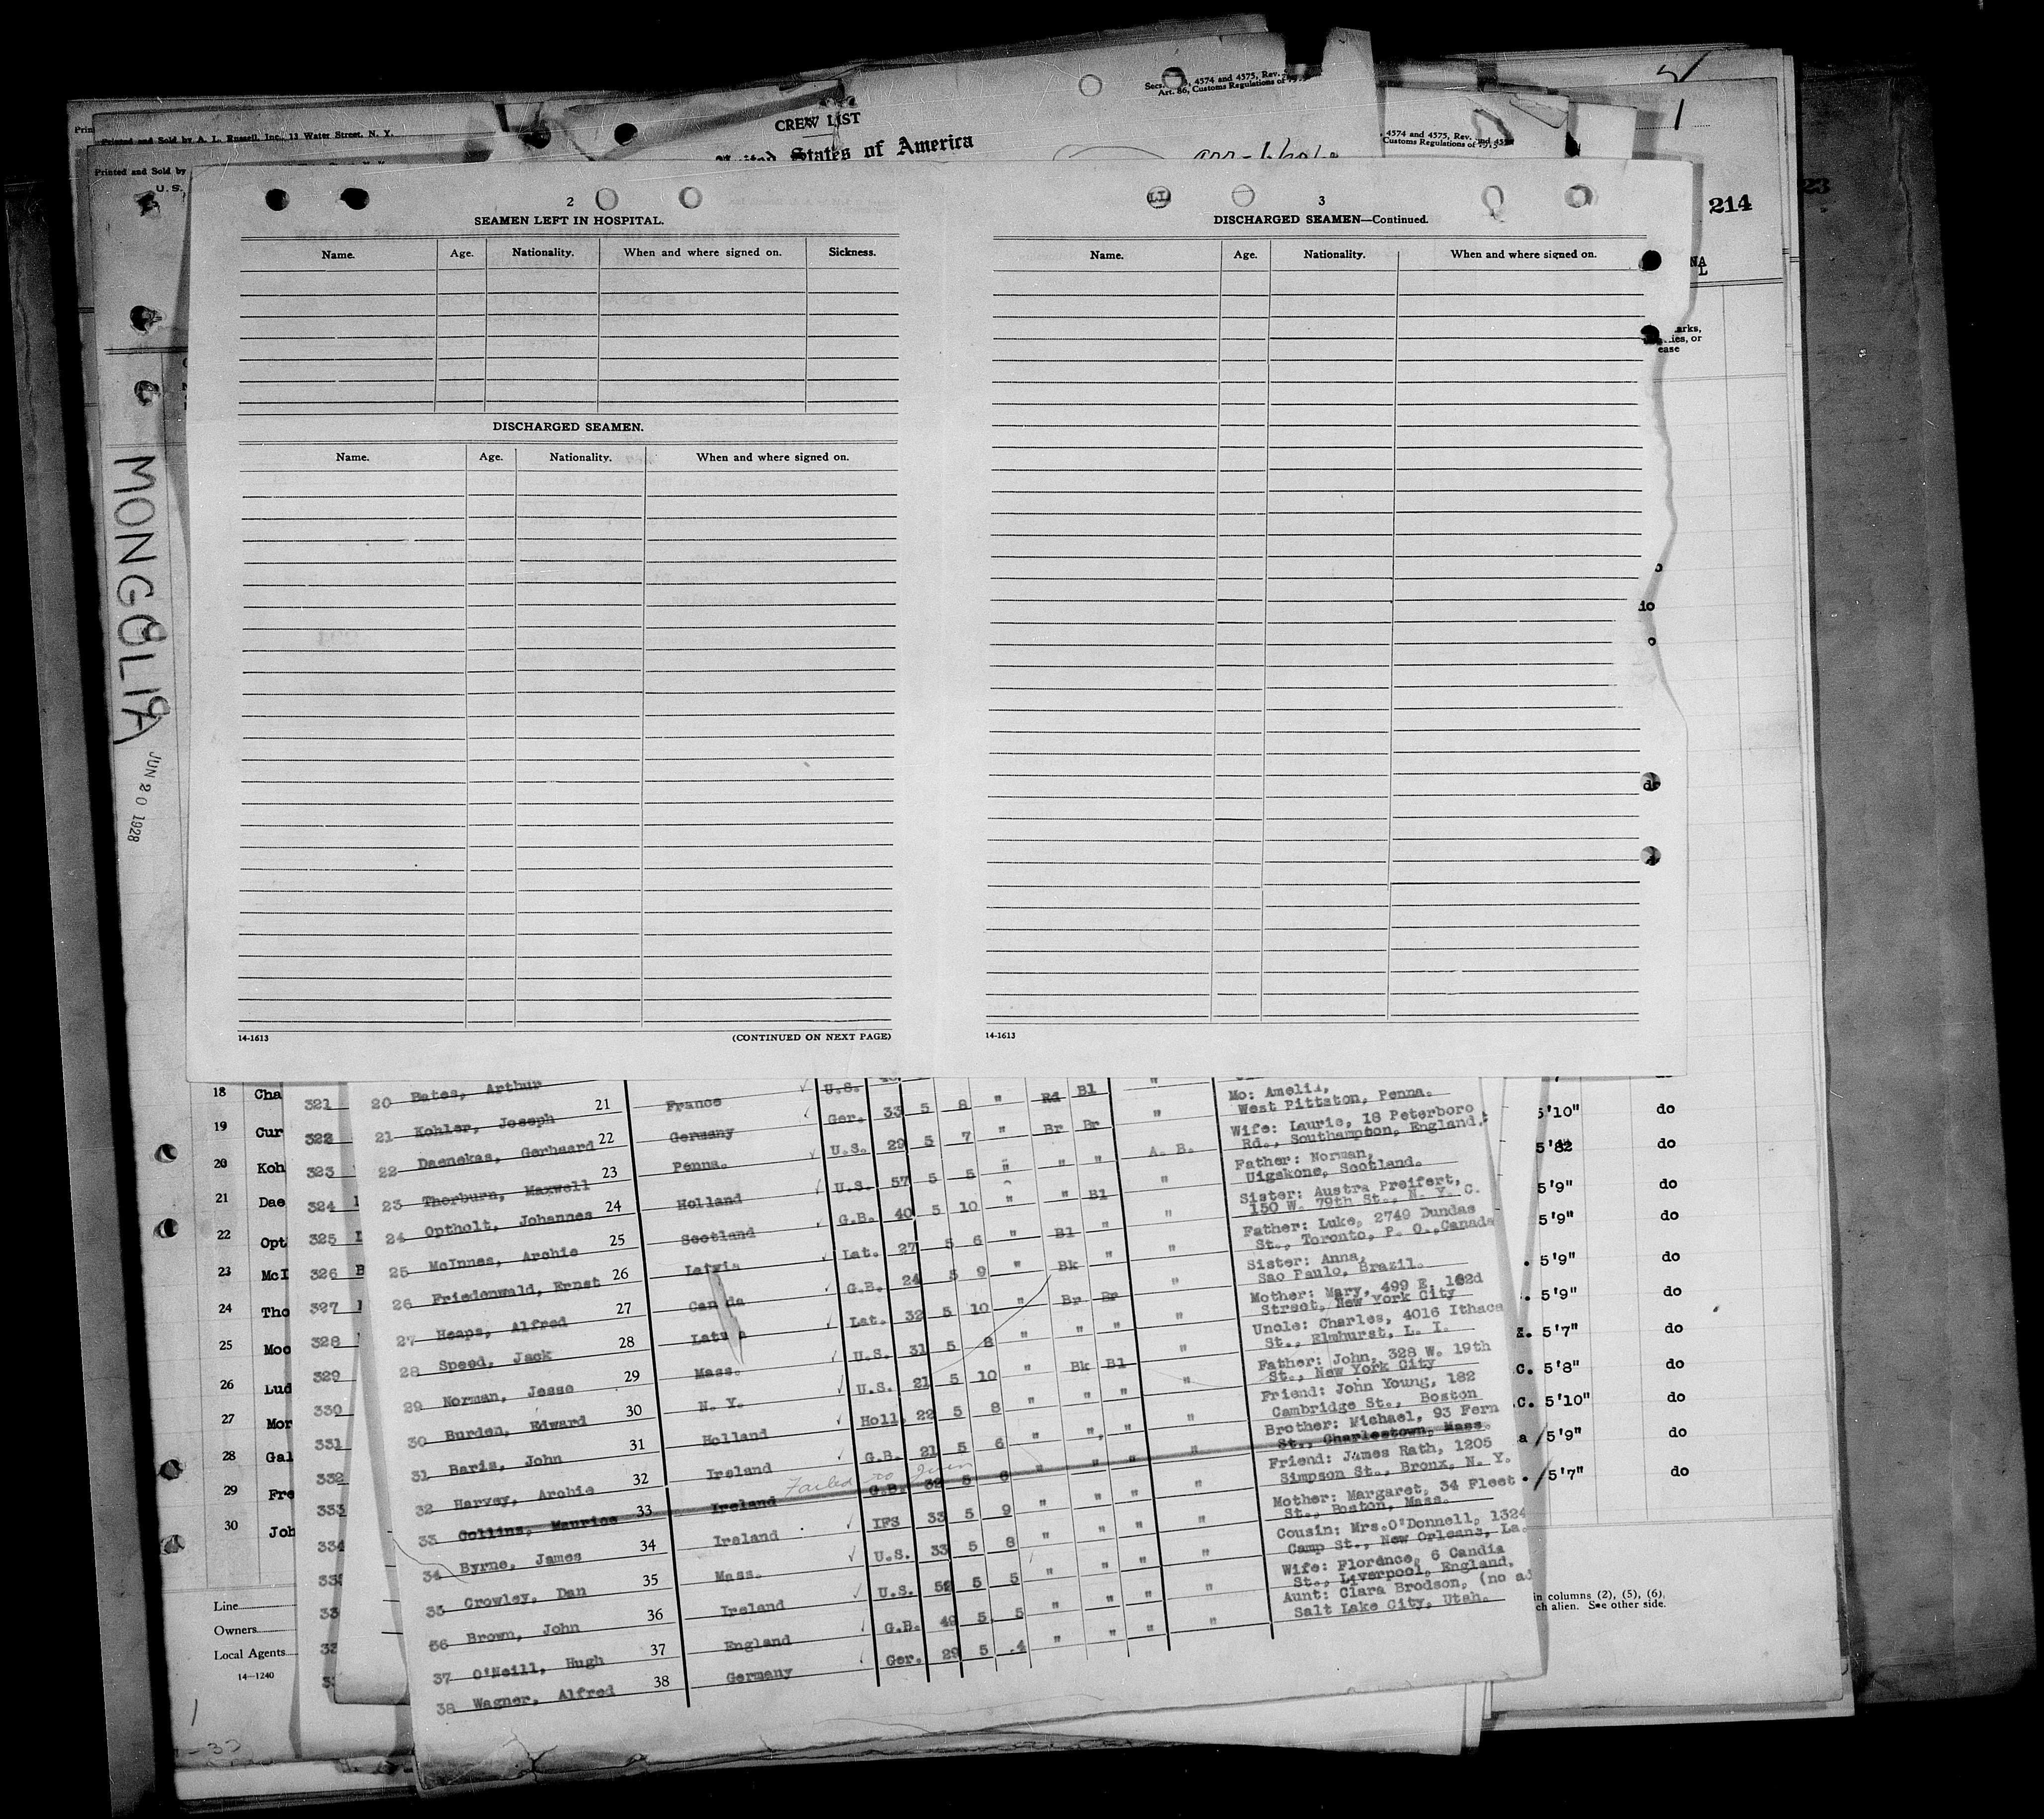 Printed and Sold by A. L. Russell, Inc., 13 Water Street, N. Y.
Printed and Sold by
U. S.
CREW LIST
United States of America
4574 and 4575, Rev.
Art. 86, Customs Regulations of
4574 and 4575, Rev.
Customs Regulations of
214
23
MONGOLIA
JUN 20 1928
2
SEAMEN LEFT IN HOSPITAL.
Name. Age. Nationality. When and where signed on. Sickness.
DISCHARGED SEAMEN.
Name. Age. Nationality. When and where signed on.
14-1613 (CONTINUED ON NEXT PAGE)
3
DISCHARGED SEAMEN—Continued.
Name. Age. Nationality. When and where signed on.
14-1613
20 Bates, Arthur 21 France U.S.
21 Kohler, Joseph 22 Germany Ger. 33 5 8 " Rd Bl "
22 Daenekas, Gerhaard 23 Penna. U.S. 29 5 7 " Br Br "
23 Thorburn, Maxwell 24 Holland U.S. 57 5 5 " " " A. B.
24 Optholt, Johannes 25 Scotland G.B. 40 5 10 " " Bl "
25 McInnes, Archie 26 Latvia Lat. 27 5 6 " Bl " "
26 Friedenwald, Ernst 27 Canada G.B. 24 5 9 " Bk " "
27 Heaps, Alfred 28 Latvia Lat. 32 5 10 " Br Br "
28 Speed, Jack 29 Mass. U.S. 31 5 8 " " " "
29 Norman, Jesse 30 N. Y. U.S. 21 5 10 " Bk Bl "
30 Burden, Edward 31 Holland Holl. 22 5 8 " " " "
31 Baris, John 32 Ireland G.B. 21 5 6 " " " "
32 Harvey, Archie 33 Ireland Failed to Join G.B. 32 5 6 " " " "
33 Collins, Maurice 34 Ireland IFS 33 5 9 " " " "
34 Byrne, James 35 Mass. U.S. 33 5 8 " " " "
35 Crowley, Dan 36 Ireland U.S. 52 5 5 " " " "
36 Brown, John 37 England G.B. 49 5 5 " " " "
37 O'Neill, Hugh 38 Germany Ger. 29 5 4 " " " "
38 Wagner, Alfred
Mo: Amelia,
West Pittston, Penna.
Wife: Laurie, 18 Peterboro
Rd., Southampton, England.
Father: Norman,
Uigskone, Scotland.
Sister: Austra Preifert,
150 W. 79th St., N. Y. C.
Father: Luke, 2749 Dundas
St., Toronto, P. O., Canada
Sister: Anna,
Sao Paulo, Brazil.
Mother: Mary, 499 E. 162d
Street, New York City
Uncle: Charles, 4016 Ithaca
St., Elmhurst, L. I.
Father: John, 328 W. 19th
St., New York City
Friend: John Young, 182
Cambridge St., Boston
Brother: Michael, 93 Fern
St., Charlestown, Mass.
Friend: James Rath, 1205
Simpson St., Bronx, N. Y.
Mother: Margaret, 34 Fleet
St., Boston, Mass.
Cousin: Mrs.O'Donnell, 1324
Camp St., New Orleans, La.
Wife: Florence, 6 Candia
St., Liverpool, England.
Aunt: Clara Brodson, (no ad
Salt Lake City, Utah.
18 Cha
19 Cur
20 Koh
21 Dae
22 Opt
23 McI
24 Tho
25 Moo
26 Lud
27 Mor
28 Gal
29 Fre
30 Joh
321
322
323
324
325
326 B
327
328
329
330
331
332
333
334
5'10" do
do
5'9" do
5'9" do
5'9" do
5'9" do
5'7" do
C. 5'8" do
C. 5'10" do
a 5'9" do
5'7" do
Line
Owners
Local Agents
14-1240
in columns (2), (5), (6),
ch alien. See other side.